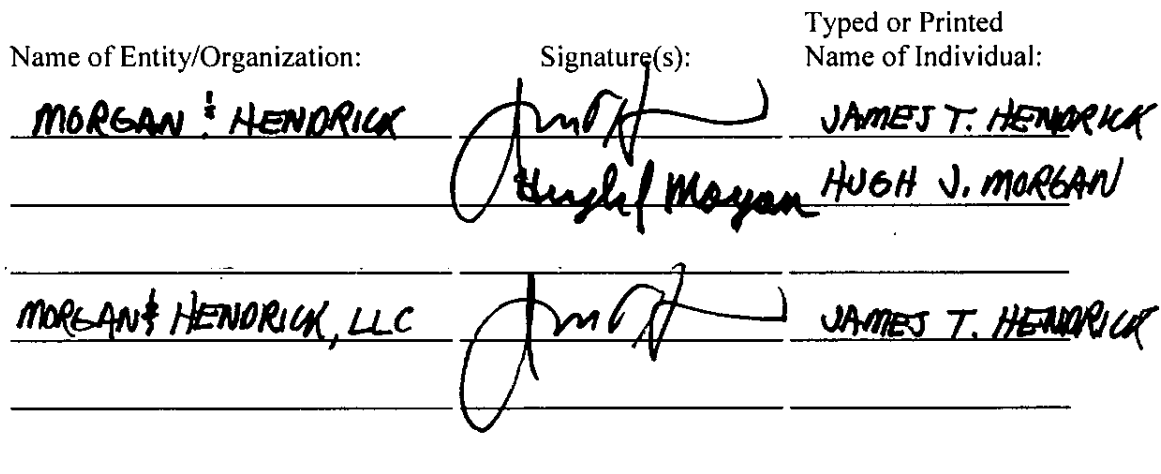 Typed or Printed
Name of Entity/Organization: Signature(s): Name of Individual:
MORGAN & HENDRICK JAMES T. HENDRICK
Hugh J Morgan HUGH J. MORGAN
MORGAN & HENDRICK, LLC JAMES T. HENDRICK